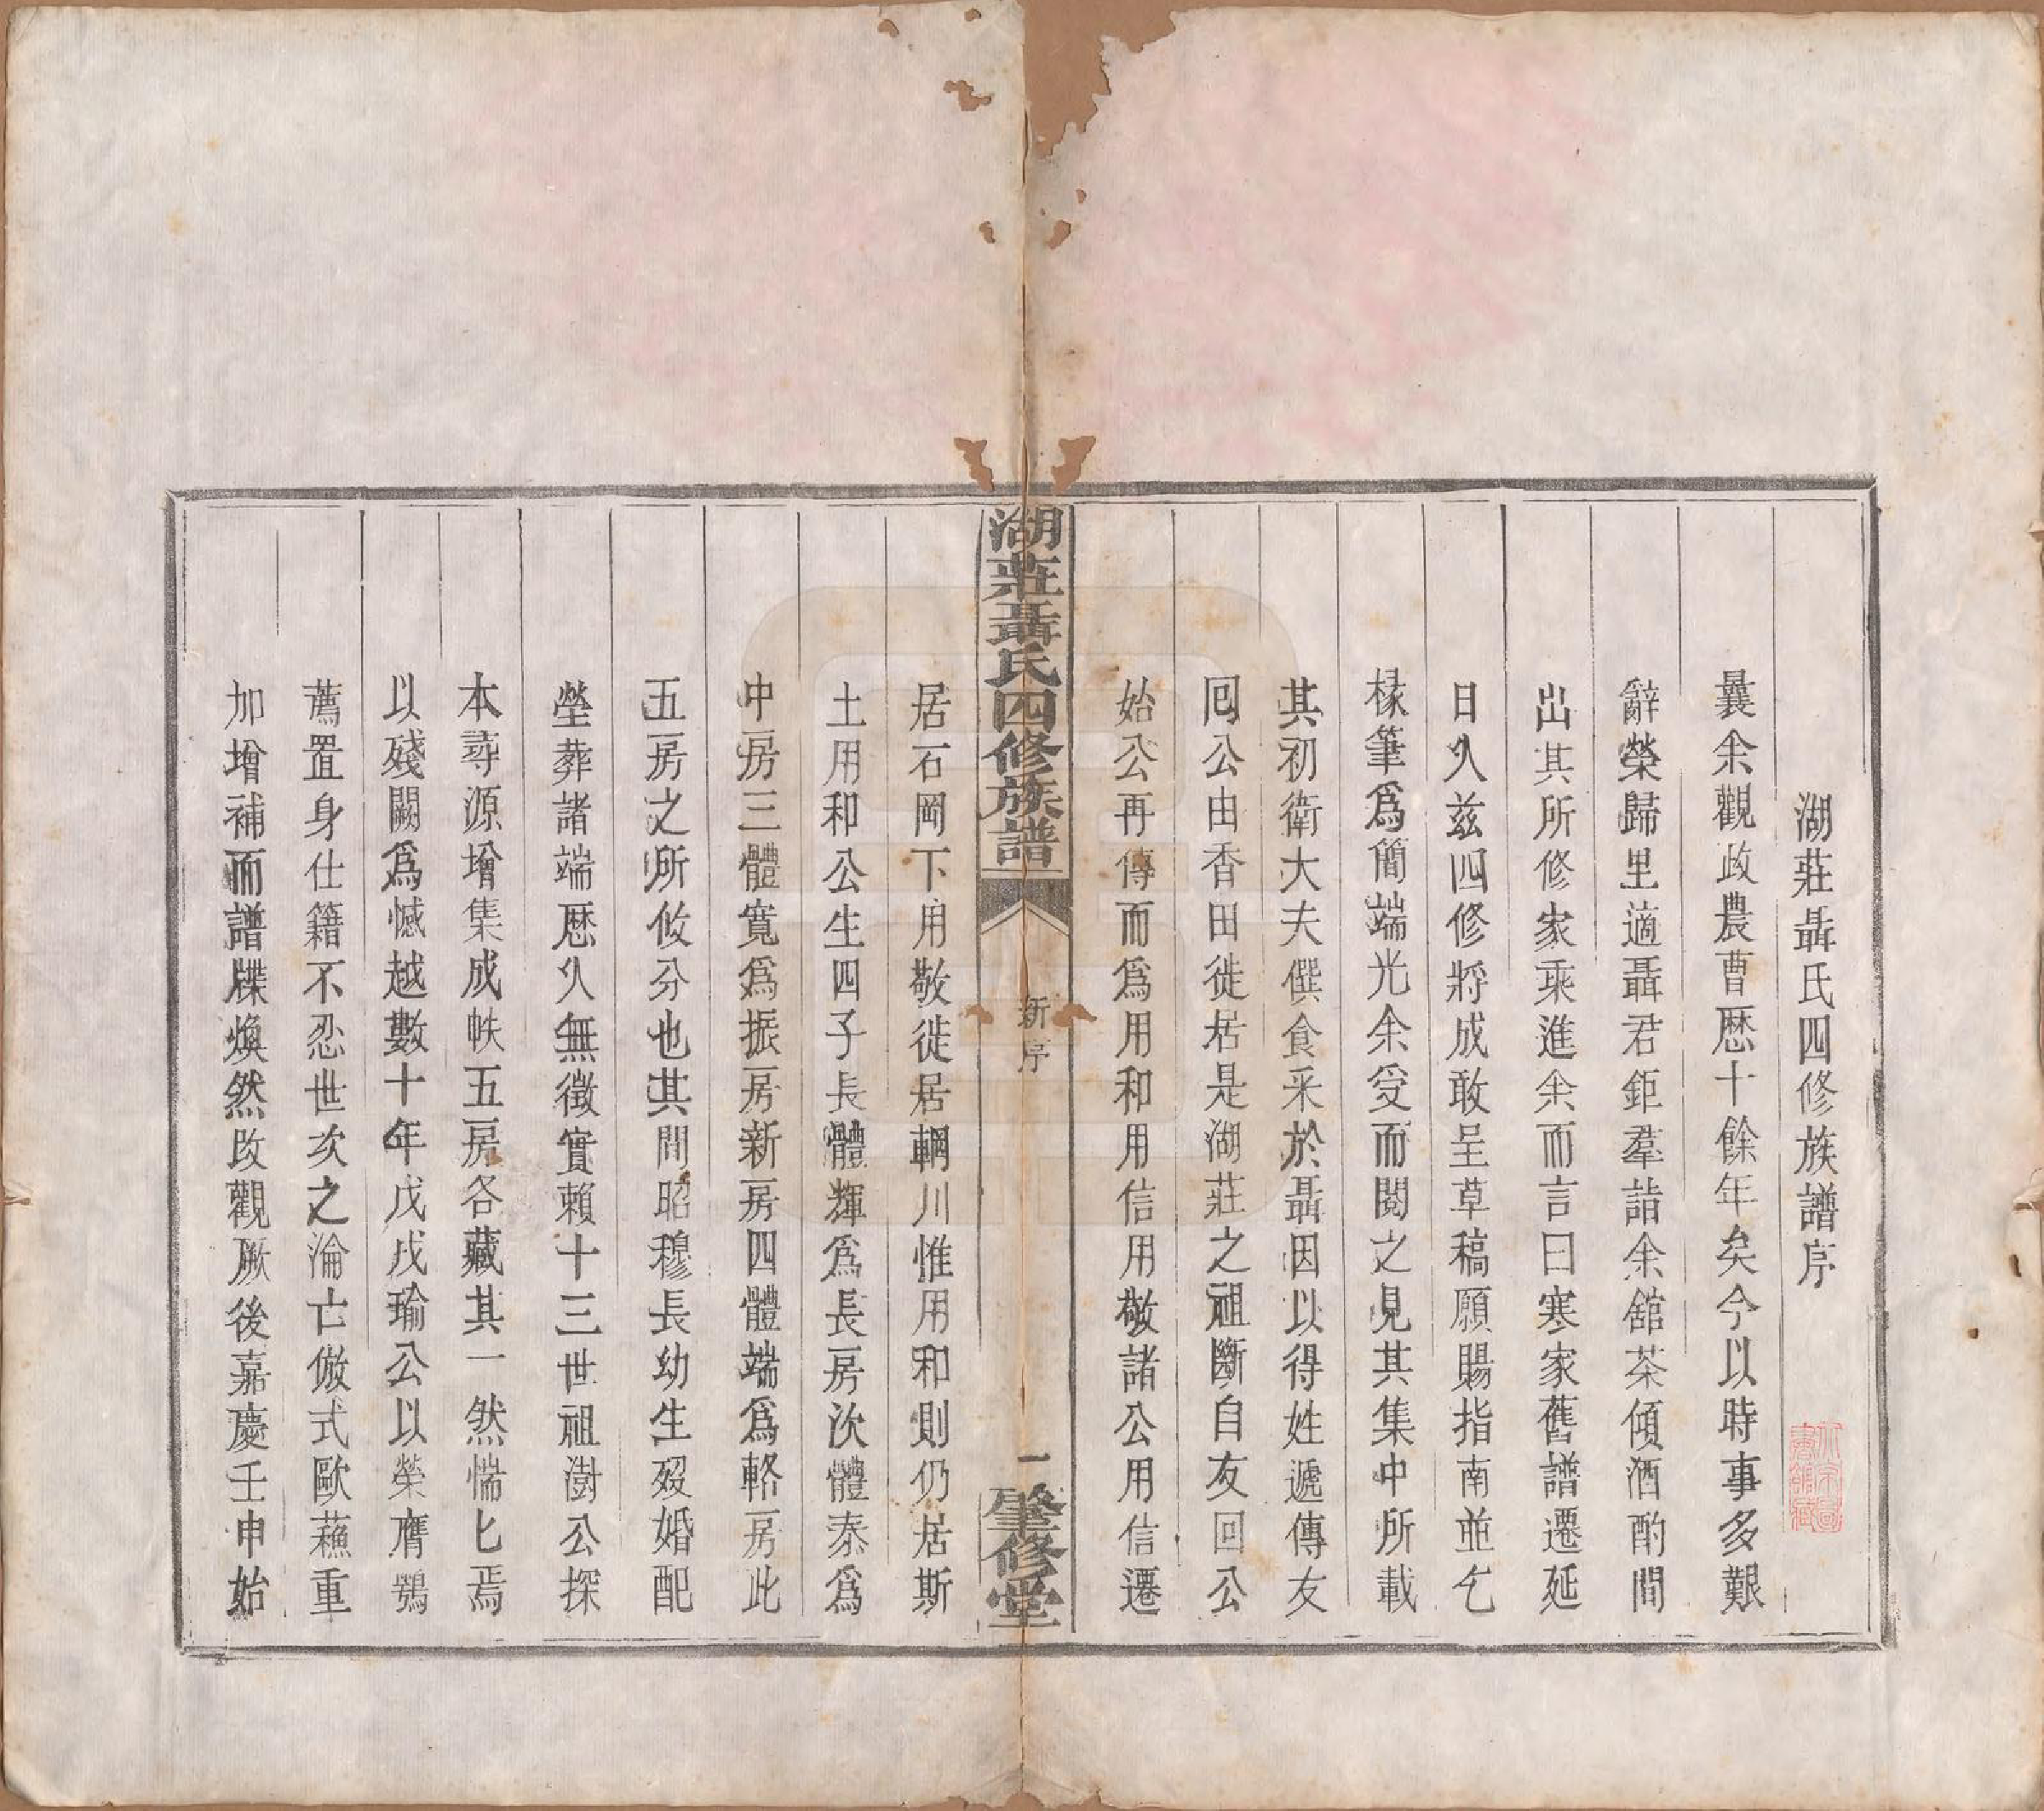 湖莊聶氏四修族譜序
曩余觀政農曹厯十餘年矣今以時事多艱
辭榮歸里適聶君鉅羣詣余舘茶傾酒酌間
出其所修家乘進余而言曰寒家舊譜遷延
日久茲四修將成敢呈草稿願賜指南並乞
椽筆爲簡端光余受而閱之見其集中所載
其初衛大夫僎食采於聶因以得姓遞傳友
囘公由香田徙居是湖莊之祖斷自友回公
始公再傳而爲用和用信用敬諸公用信遷
湖莊聶氏四修族譜
新序
一
肇修堂
居石岡下用敬徙居輞川惟用和則仍居斯
土用和公生四子長體輝爲長房次體泰爲
中房三體寬爲振房新房四體端爲輅房此
五房之所攸分也其間昭穆長幼生歿婚配
塋葬諸端厯久無徵實賴十三世祖澍公探
本尋源增集成帙五房各藏其一然惴匕焉
以殘闕爲憾越數十年戊戌瑜公以榮膺鶚
薦置身仕籍不忍世次之淪亡倣式歐蘓重
加增補而譜牒煥然改觀厥後嘉慶壬申始